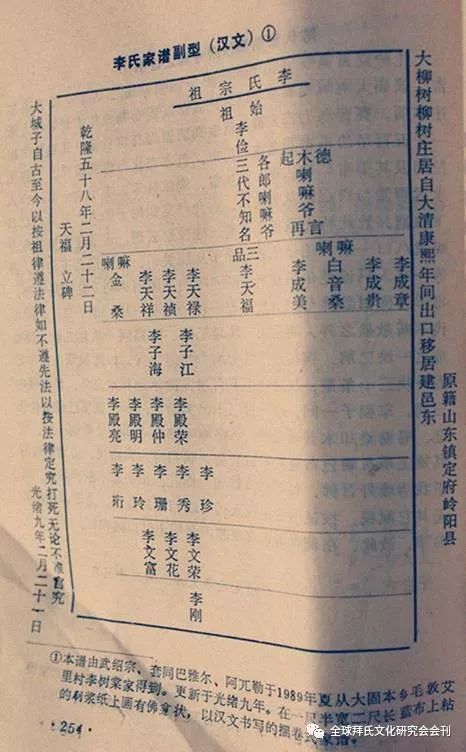 李氏家谱副型（汉文）①
原籍山东镇定府岭阳县
大柳树柳树庄居自大清康熙年间出口移居建邑东
李氏宗祖
始祖
李俭
三代不知名
各郎喇嘛爷
木喇嘛爷
德言
起再
李成章
李成贵
喇嘛白音桑
李成美
三品李天福
李天禄
李天祯
李天祥
喇嘛金桑
李子江
李子海
李殿荣
李殿仲
李殿明
李殿亮
李珍
李秀
李珊
李玲
李珩
李文荣
李文花
李文富
李刚
乾隆五十八年二月二十二日
天福 立碑
大城子自古至今以按祖律遵法律如不遵先法以按法律定究打死无论不准言究
光绪九年二月二十一日
①本谱由武绍宗、套同巴雅尔、阿兀勒于1989年夏从大固本乡毛敦艾
里村李树棠家得到。更新于光绪九年。在一月半宽二尺长蓝布上粘
的刷浆纸上画有佛龛状，以汉文书写的捆卷式家谱。
·254·
全球拜氏文化研究会会刊